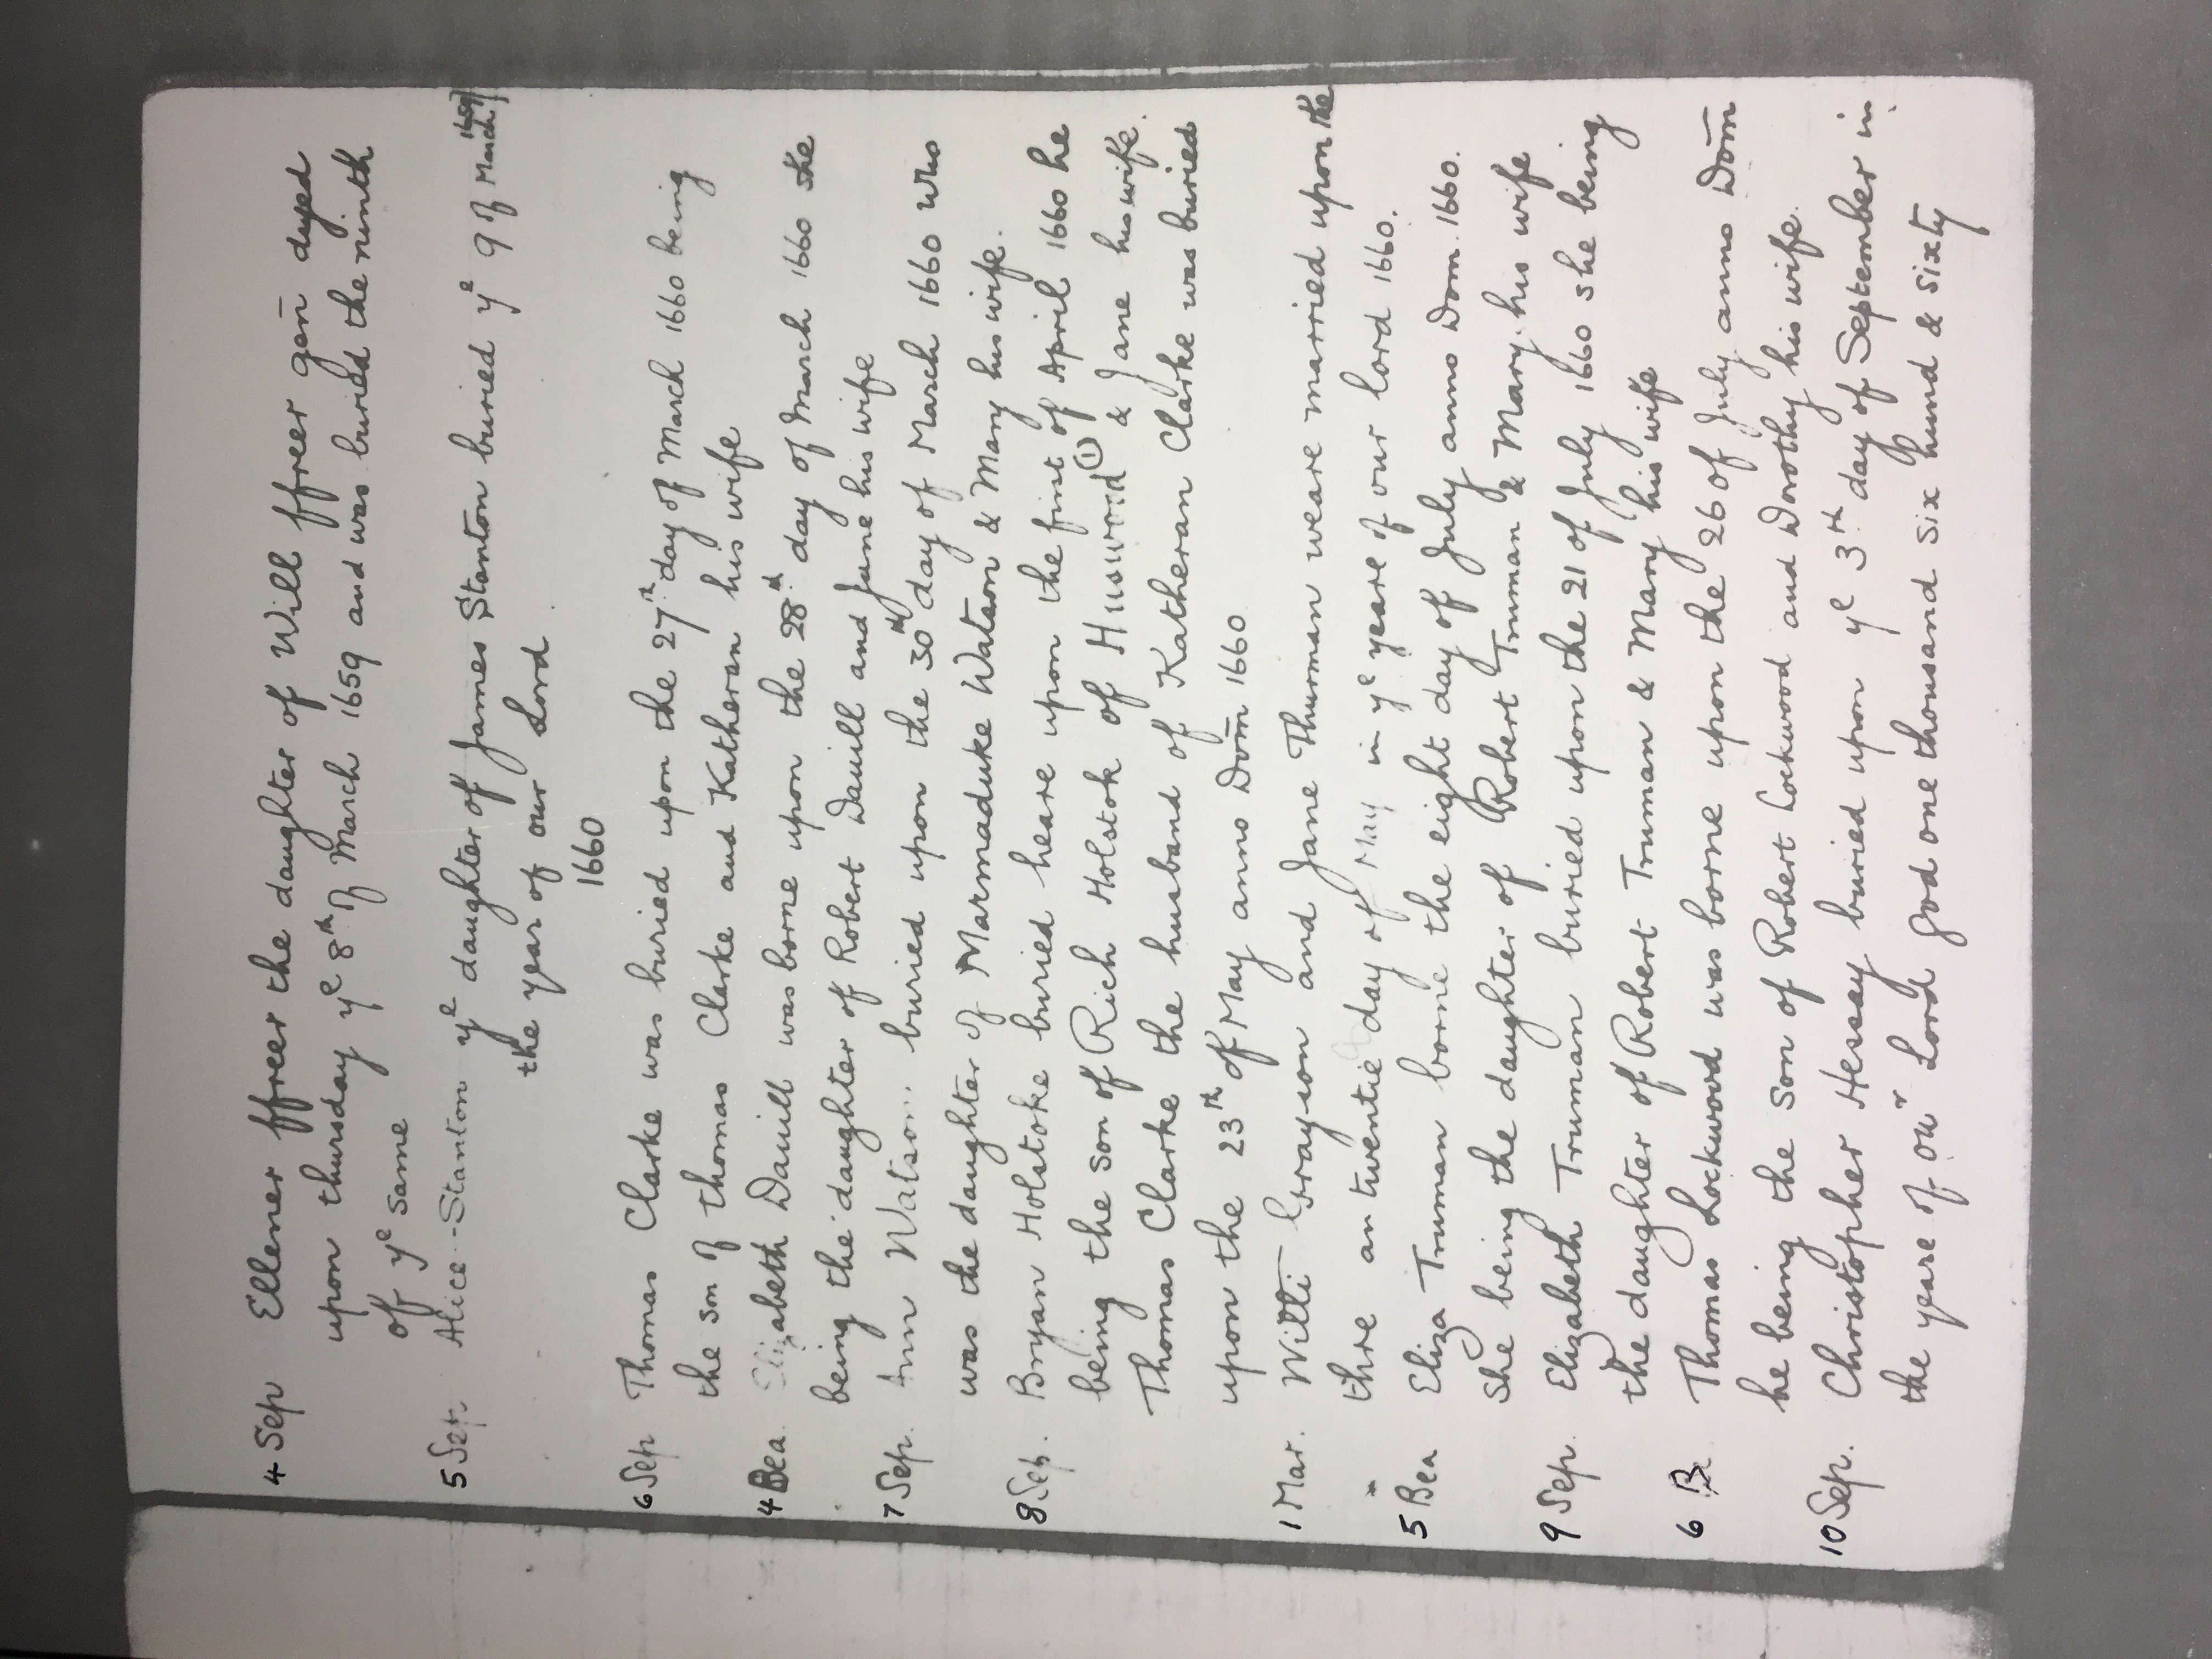 4 Sep Ellener ffreer the daughter of Will ffreer gen̄ dyed
upon thursday yᵉ 8ᵗʰ of March 1659 and was buried the ninth
of yᵉ same
5 Sep. Alice Stanton yᵉ daughter of James Stanton buried yᵉ 9 of March 1659]
the year of our Lord
1660
6 Sep Thomas Clarke was buried upon the 27ᵗʰ day of March 1660 being
the son of thomas Clarke and Katheran his wife
4 Bea. Elizabeth Dauill was borne upon the 28ᵗʰ day of March 1660 she
being the daughter of Robert Dauill and Jane his wife
7 Sep. Ann Watson buried upon the 30ᵗʰ day of March 1660 who
was the daughter of Marmaduke Watson & Mary his wife.
8 Sep. Bryan Holstoke buried heare upon the first of April 1660 he
being the son of Rich Holstok of Husword ① & Jane his wife.
Thomas Clarke the husband of Katheran Clarke was buried
upon the 23ᵗʰ of May anno Dom̄ 1660
1 Mar. Willi Grayson and Jane Thuman weare married upon the
thre an twentie day of May in yᵉ yeare of our lord 1660.
5 Bea Eliza Truman borne the eight day of July anno Dom. 1660.
She being the daughter of Robert Truman & Mary his wife
9 Sep. Elizabeth Truman buried upon the 21 of July 1660 she being
the daughter of Robert Truman & Mary his wife
6 B. Thomas Lockwood was borne upon the 26 of July anno Dom̄
he being the son of Robert Lockwood and Dorothy his wife.
10 Sep. Christopher Hessay buried upon yᵉ 3ᵗʰ day of September in
the yeare of ouʳ Lord god one thousand six hund & sixty